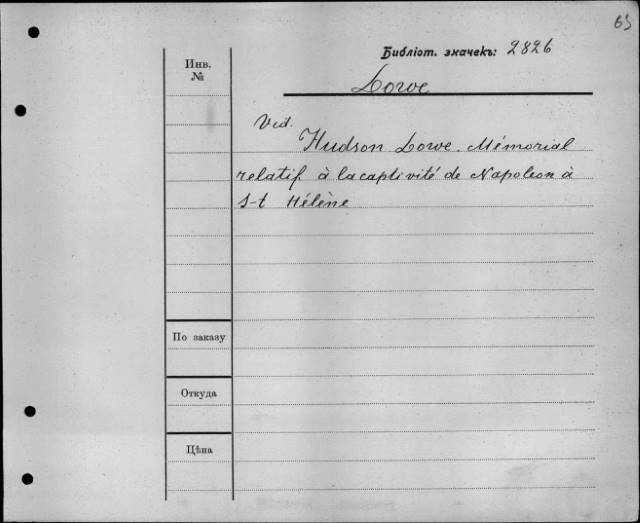 65
Библіот. значекъ: 2826
Инв.
№
Lowe
Vid.
Hudson Lowe. Mémorial
relatif à la captivité de Napoleon à
S-t Hélène
По заказу
Откуда
Цѣна